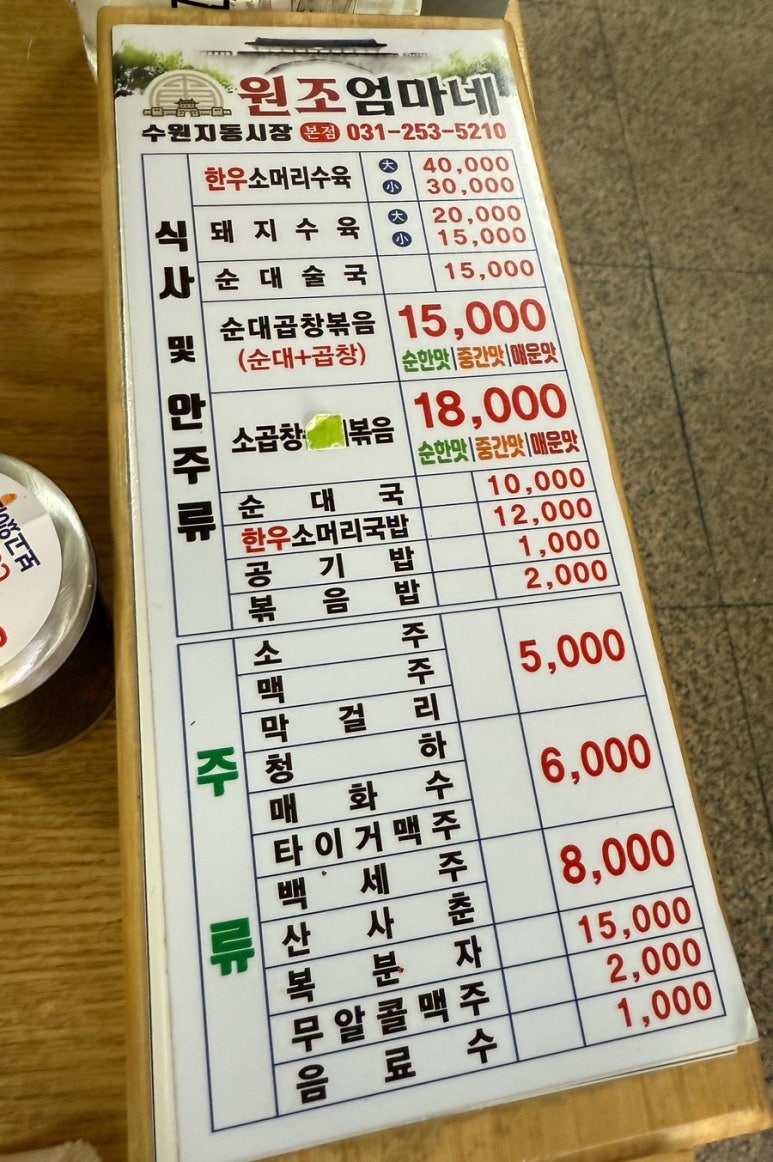 원조엄마네
수원지동시장 본점 031-253-5210
식사 및 안주류
한우소머리수육 大 40,000
小 30,000
돼지수육 大 20,000
小 15,000
순대술국 15,000
순대곱창볶음 15,000
(순대+곱창) 순한맛|중간맛|매운맛
소곱창 볶음 18,000
순한맛|중간맛|매운맛
순대국 10,000
한우소머리국밥 12,000
공기밥 1,000
볶음밥 2,000
주류
소주 5,000
맥주
막걸리
청하 6,000
매화수
타이거맥주
백세주 8,000
산사춘
복분자 15,000
무알콜맥주 2,000
음료수 1,000